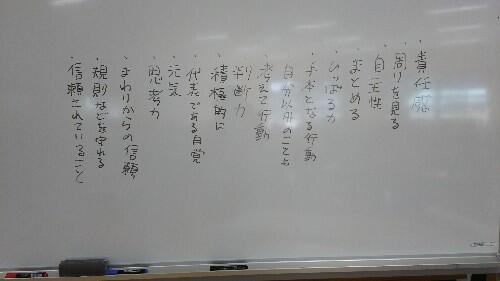 ・責任感
・周りを見る
・自主性
・まとめる
・ひっぱる力
・手本となる行動
・自分以外のことも
考えて行動
・判断力
・積極的に
・代表である自覚
・元気
・思考力
・まわりからの信頼
・規則などを守れる
・信頼されていること